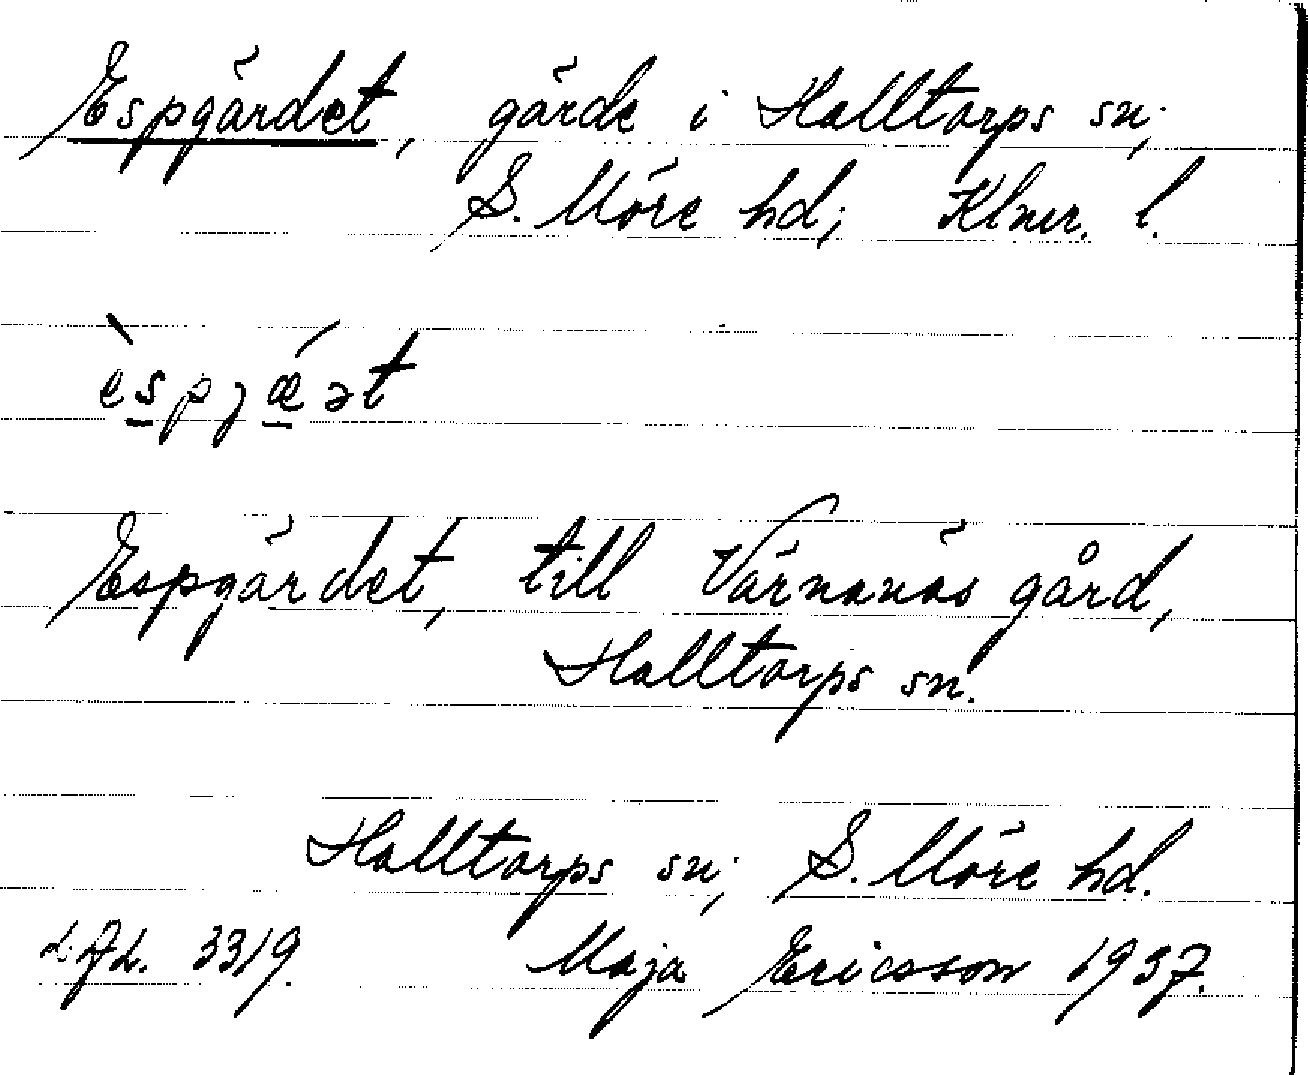 Espgärdet, gärde i Halltorps sn;
S. Möre hd; Klmr. l.
èspjǽət
Espgärdet, till Värnanäs gård,
Halltorps sn.
Halltorps sn; S. Möre hd.
3319. Maja Ericsson 1937.